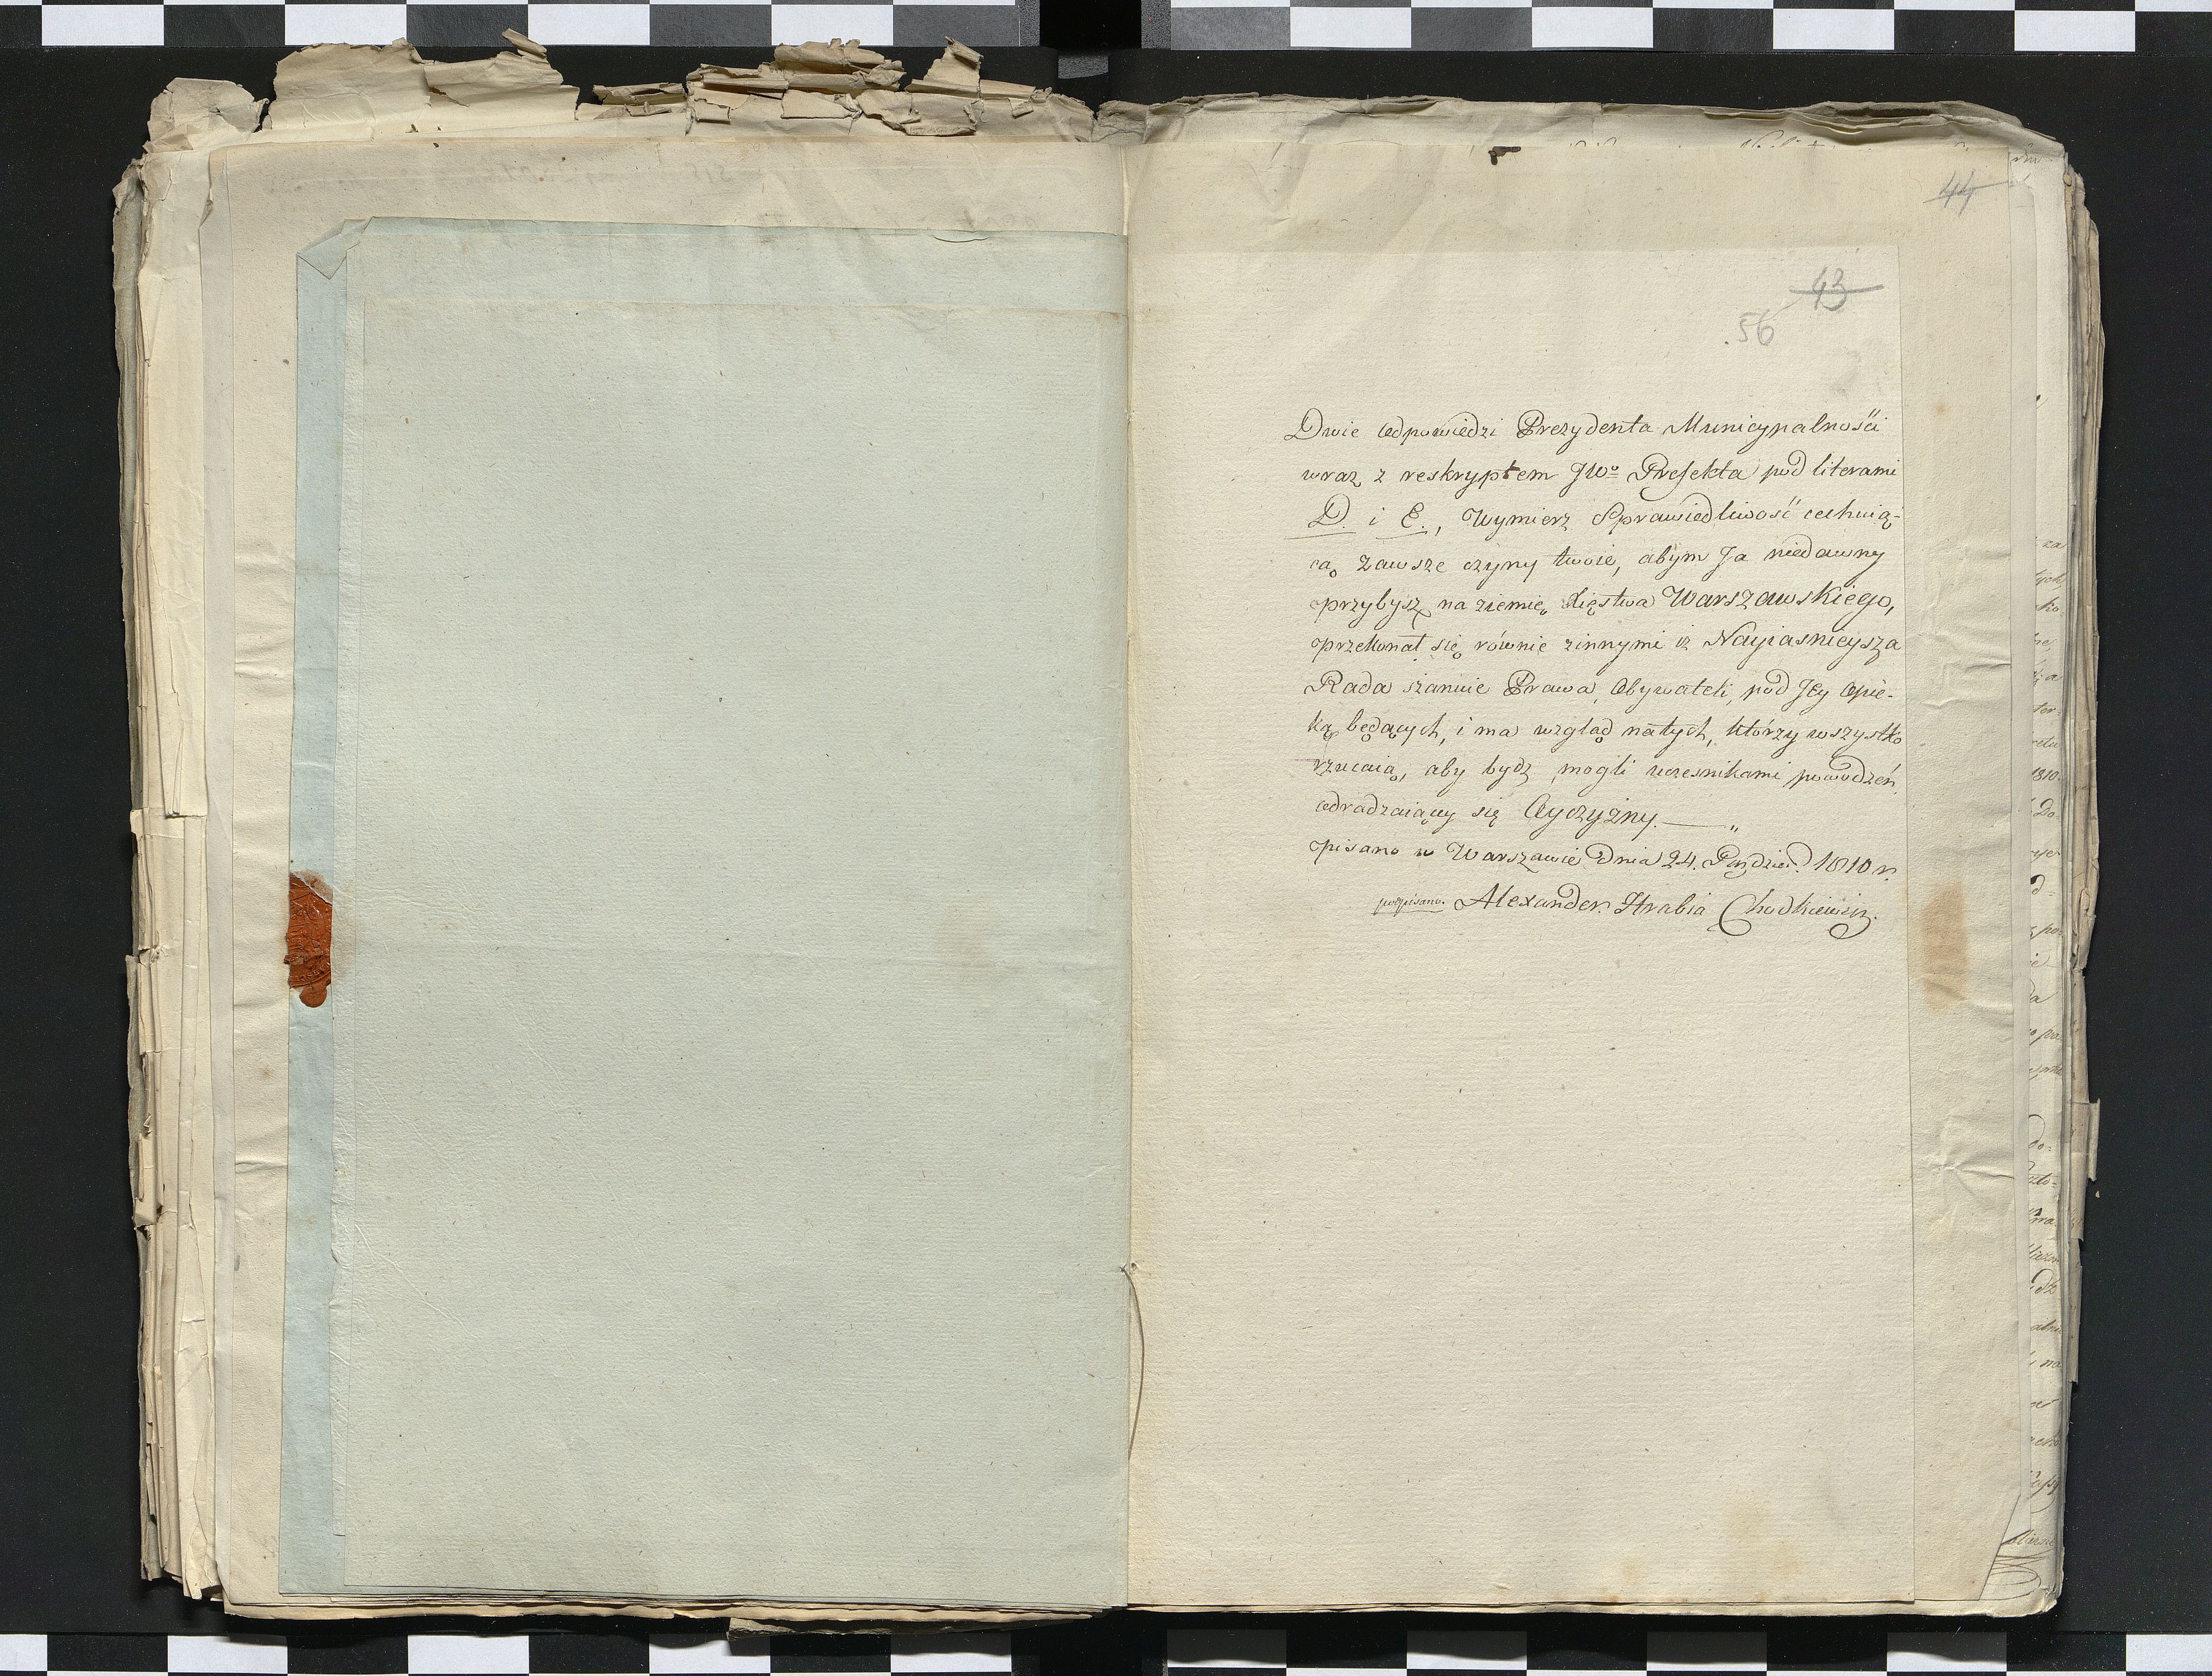 44
43
56
Dwie odpowiedzi Prezydenta Municypalności
wraz z reskryptem JWo Prefekta pod literami
D. i E., Wymierz Sprawiedliwość cechuią-
cą zawsze czyny twoie, abym Ja niedawny
przybysz na ziemię Xięstwa Warszawskiego,
przekonał się równie zinnymi iż Nayiasnieysza
Rada szanuie Prawa Obywateli, pod Jey Opie-
ką będących, i ma wzgląd natych, którzy wszystko
rzucaią, aby bydź mogli uczesnikami powodzeń
odradzaiący się Oyczyzny.
pisano w Warszawie Dnia 24. Paździer. 1810 r.
podpisano. Alexander Hrabia Chodkiewicz.